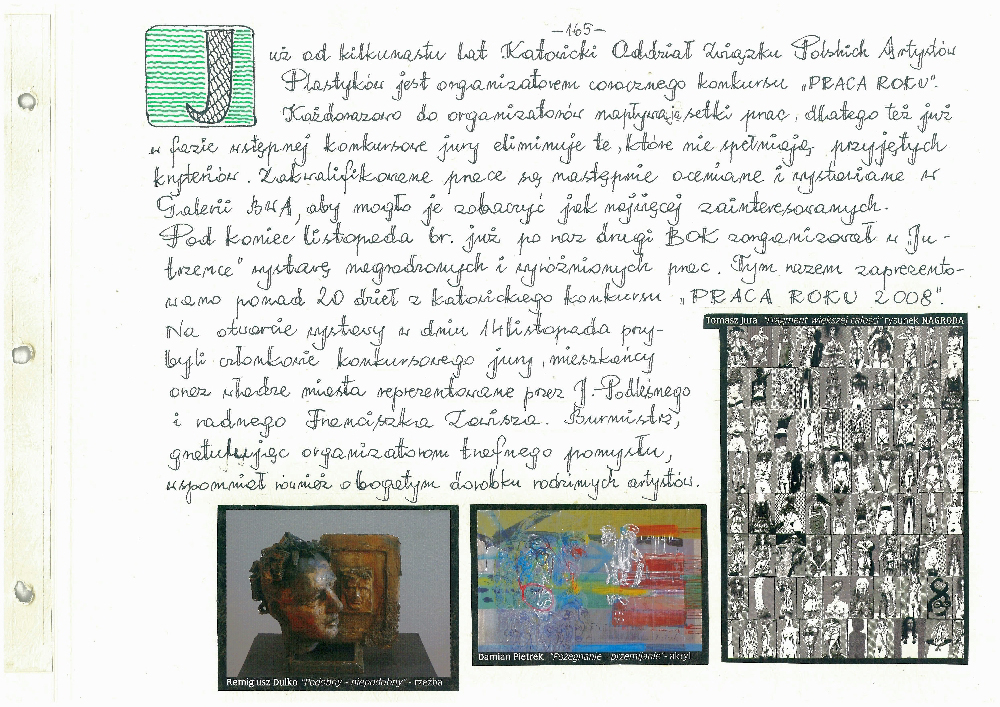 -165-
Już od kilkunastu lat Katowicki Oddział Związku Polskich Artystów
Plastyków jest organizatorem corocznego konkursu „PRACA ROKU".
Każdorazowo do organizatorów napływają setki prac, dlatego też już
w fazie wstępnej konkursowe jury eliminuje te, które nie spełniają przyjętych
kryteriów. Zakwalifikowane prace są następnie oceniane i wystawiane w
Galerii BWA, aby mogło je zobaczyć jak najwięcej zainteresowanych.
Pod koniec listopada br. już po raz drugi BOK zorganizował w „Ju-
trzence" wystawę nagrodzonych i wyróżnionych prac. Tym razem zaprezento-
wano ponad 20 dzieł z katowickiego konkursu „PRACA ROKU 2008".
Na otwarcie wystawy w dniu 14 listopada przy-
byli członkowie konkursowego jury, mieszkańcy
oraz władze miasta reprezentowane przez J. Podleśnego
i radnego Franciszka Zawisza. Burmistrz,
gratulując organizatorom trafnego pomysłu,
wspomniał również o bogatym dorobku rodzimych artystów.
Tomasz Jura "Fragment większej całości" rysunek NAGRODA
Remigiusz Dulko "Podobny - niepodobny" - rzeźba
Damian Pietrek, "Pożegnanie - przemijanie" - akryl